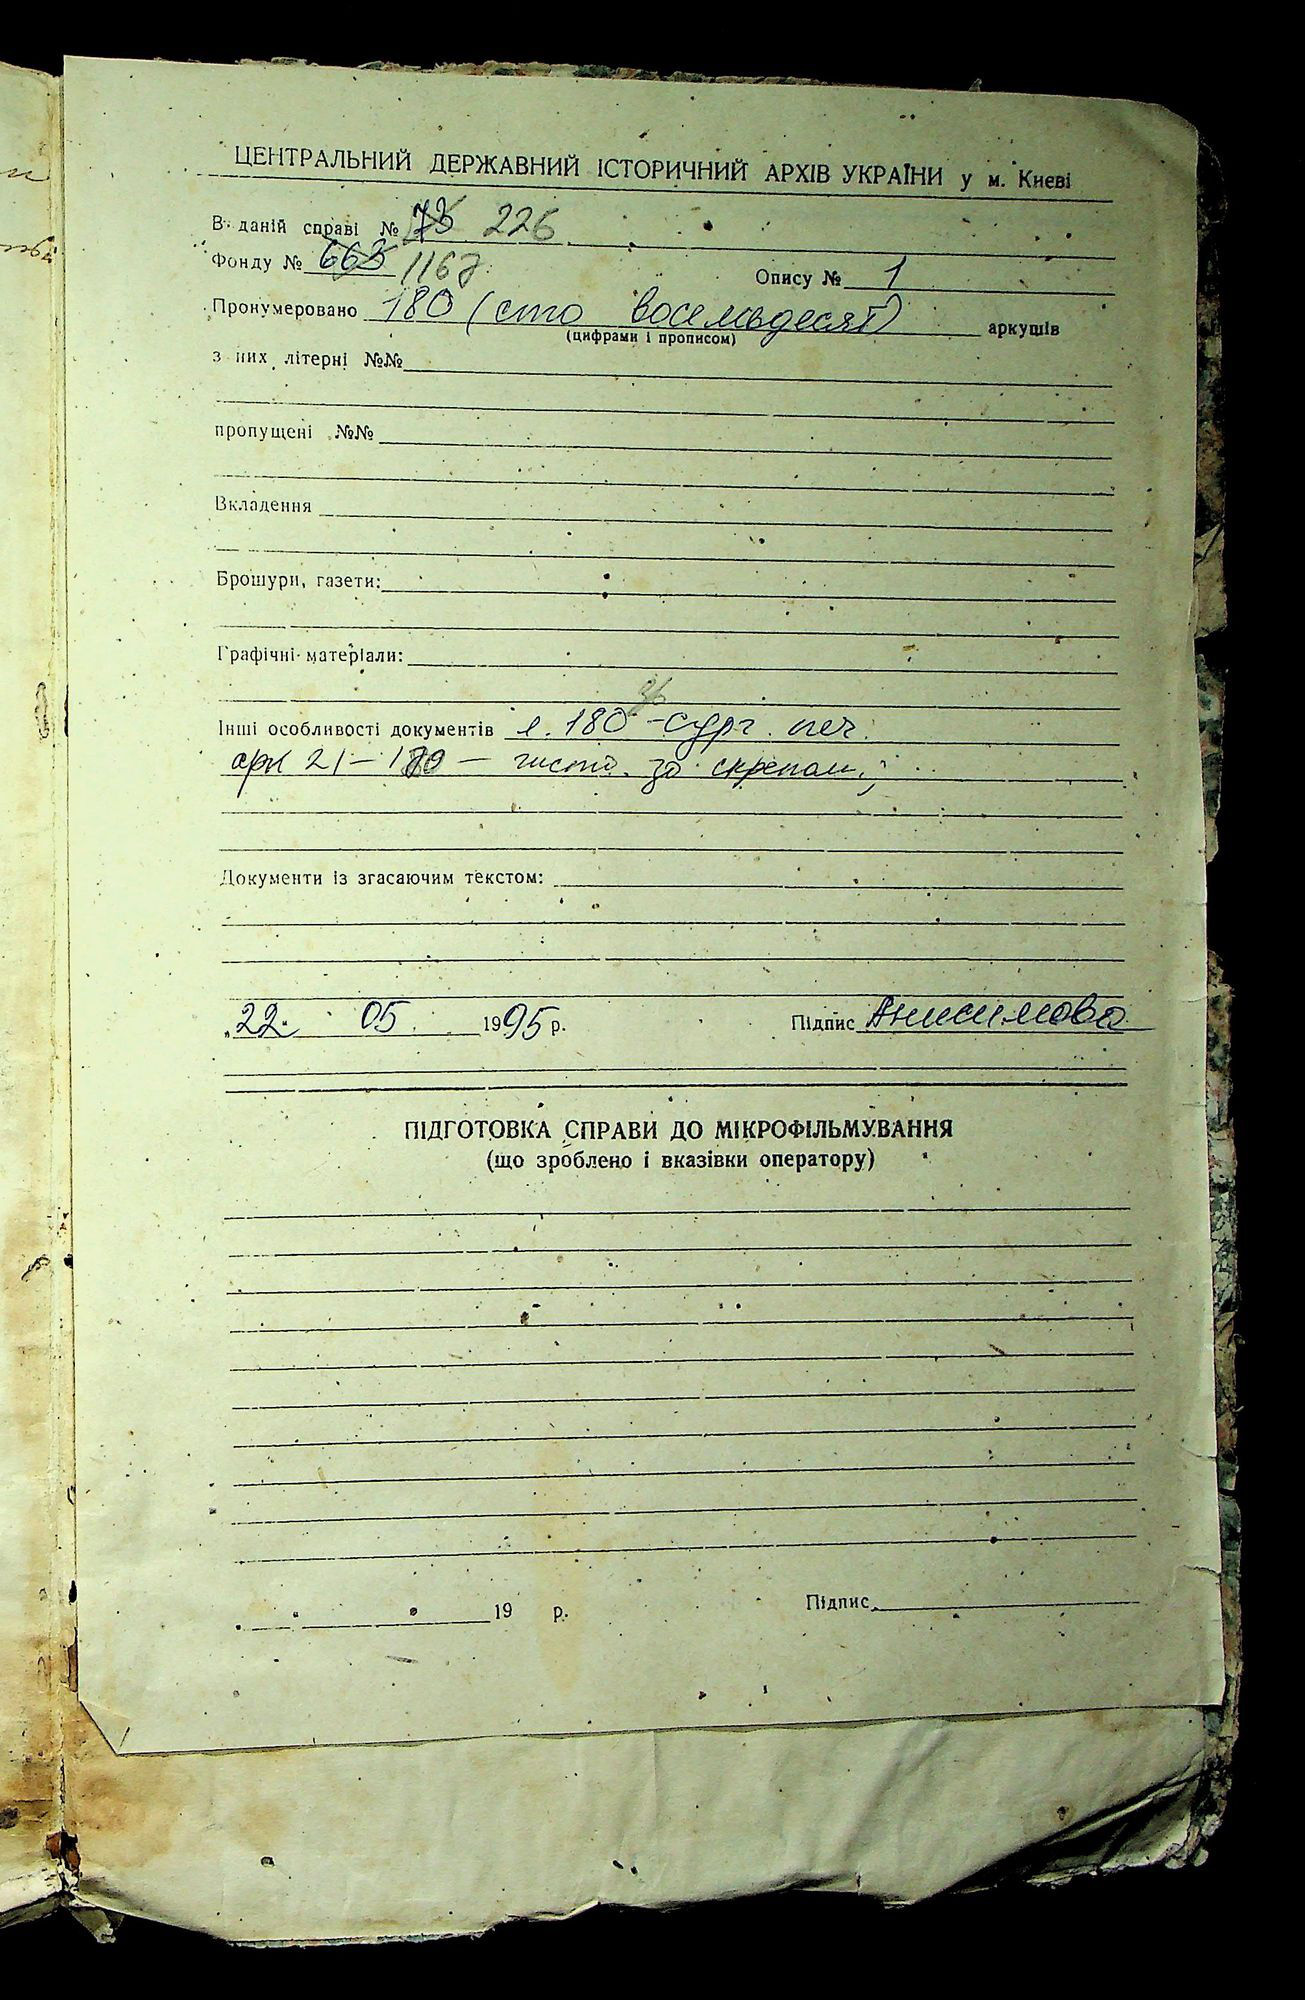 ЦЕНТРАЛЬНИЙ ДЕРЖАВНИЙ ІСТОРИЧНИЙ АРХІВ УКРАЇНИ у м. Києві
В даній справі № 73 226
Фонду № 663 1167 Опису № 1
Пронумеровано 180 (сто восемьдесят) аркушів
(цифрами і прописом)
з них літерні №№
пропущені №№
Вкладення
Брошури, газети:
Графічні матеріали:
Інші особливості документів л. 180 зв - сург. печ.
арк 21 - 180 - чисті за скрепами;
Документи із згасаючим текстом:
„22. 05 1995 р. Підпис Анисимова
ПІДГОТОВКА СПРАВИ ДО МІКРОФІЛЬМУВАННЯ
(що зроблено і вказівки оператору)
19 р. Підпис